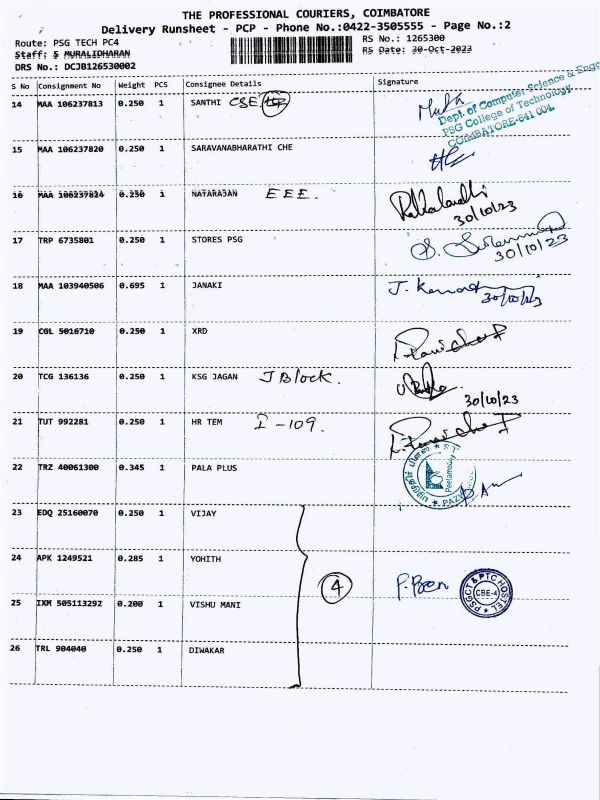 THE PROFESSIONAL COURIERS, COIMBATORE
Delivery Runsheet - PCP - Phone No.:0422-3505555 - Page No.:2
Route: PSG TECH PC4
RS No.: 1265300
Staff: S MURALIDHARAN
RS Date: 30-Oct-2023
DRS No.: DCJB126530002
S No Consignment No Weight PCS Consignee Details Signature
14 MAA 106237813 0.250 1 SANTHI CSE
Dept. of Computer Science & Engg
PSG College of Technology
COIMBATORE-641 004.
15 MAA 106237820 0.250 1 SARAVANABHARATHI CHE
16 MAA 106237824 0.250 1 NATARAJAN EEE.
30/10/23
17 TRP 6735801 0.250 1 STORES PSG
30/10/23
18 MAA 103940506 0.695 1 JANAKI
30/10/23
19 CGL 5016710 0.250 1 XRD
20 TCG 136136 0.250 1 KSG JAGAN J Block.
30/10/23
21 TUT 992281 0.250 1 HR TEM I -109.
22 TRZ 40061300 0.345 1 PALA PLUS
23 EDQ 25160070 0.250 1 VIJAY
24 APK 1249521 0.285 1 YOHITH
4
PSGCT & PTC HOSTEL
CBE-4
25 IXM 505113292 0.200 1 VISHU MANI
26 TRL 904040 0.250 1 DIWAKAR